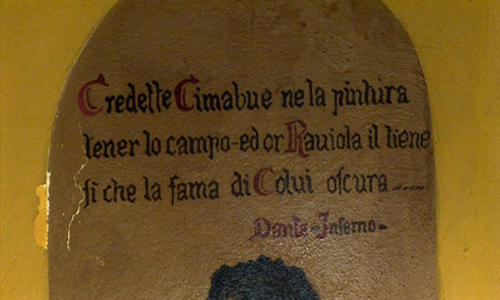 Credette Cimabue ne la pintura
tener lo campo-ed or Raviola il tiene
si che la fama di Colui oscura.....
Dante-Inferno-